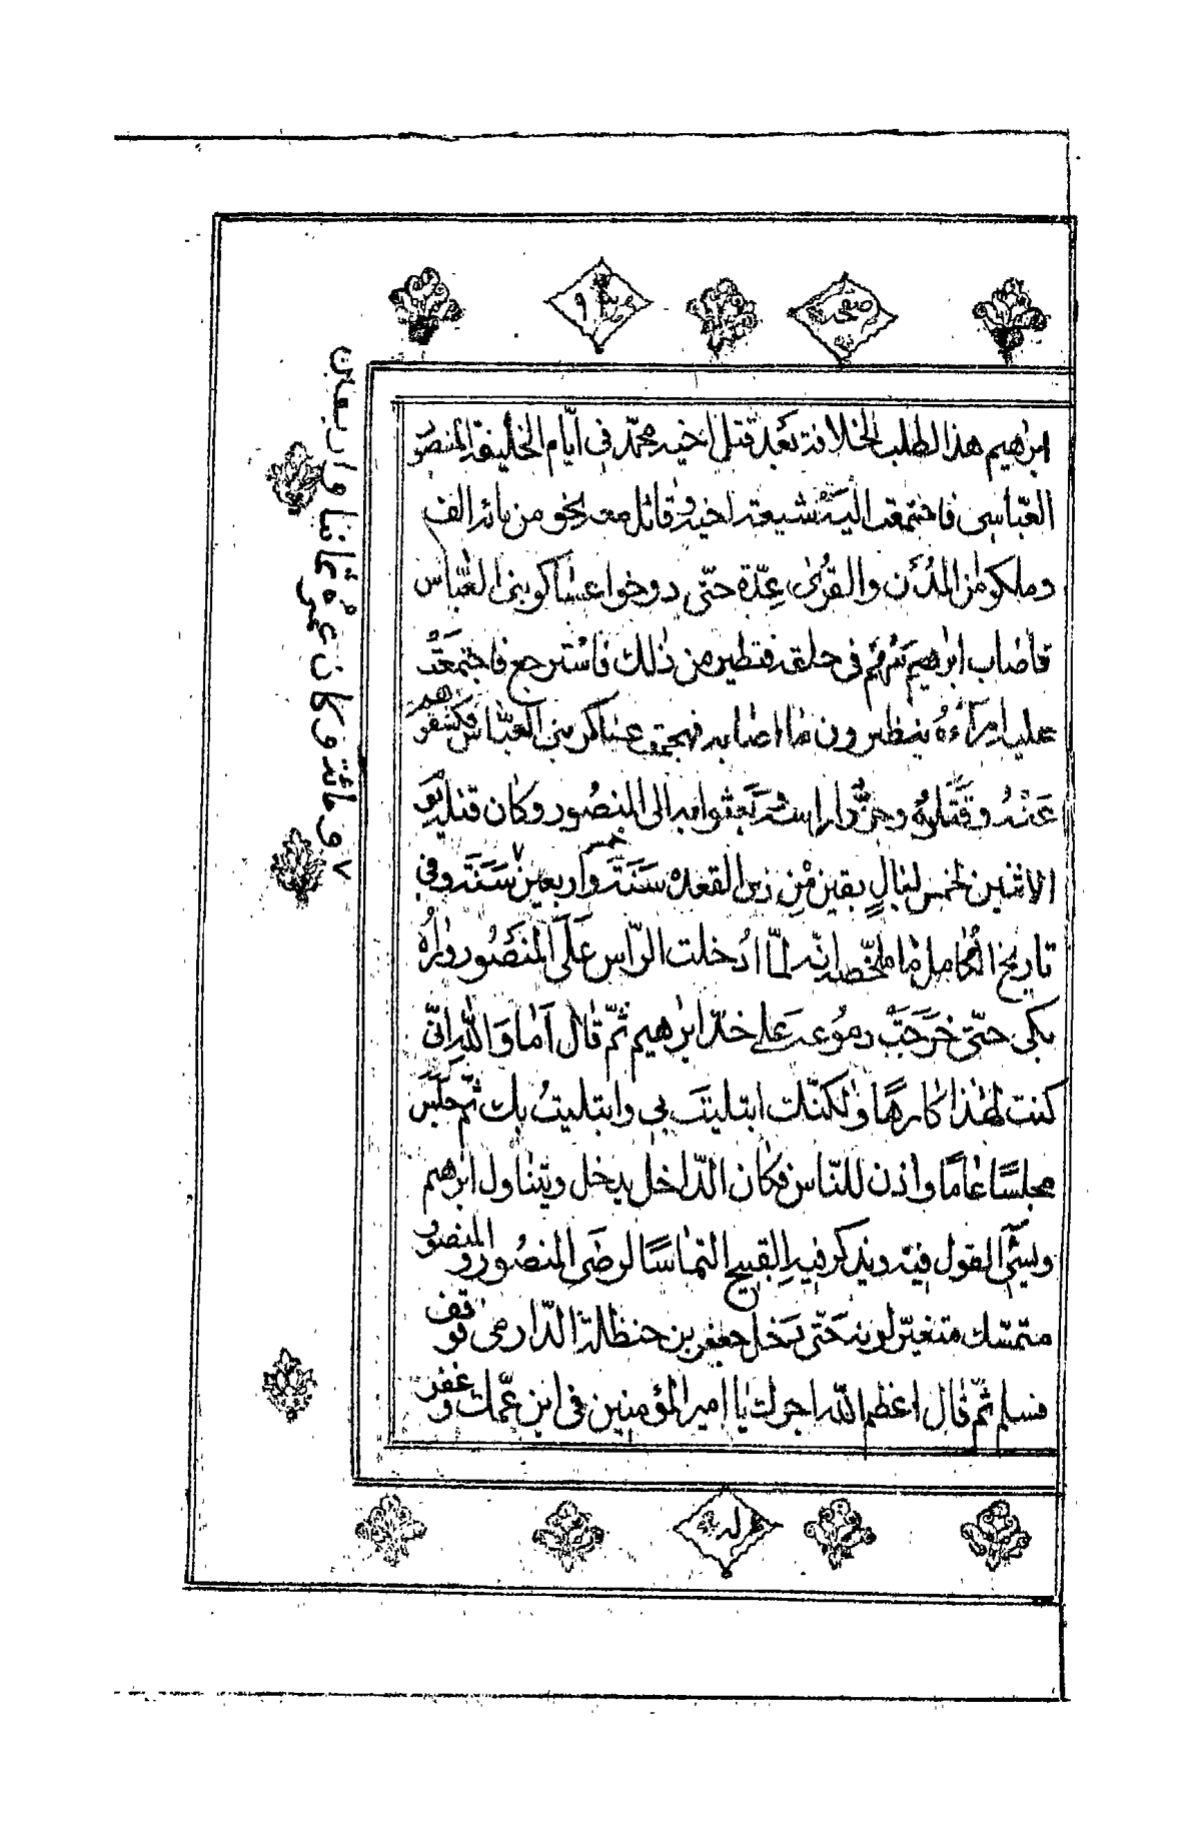 صفحه ٩
ابرٰهيم هذا لطلب الخلافة بَعْد قتل اخيه محمّد فى ايّام الخليفة المنصور
العبّاسى فاجتمعت اليَه شيعته اخيه وقاتل معه نحو من مائة الف
وملكوا من المُدُن والقُرىٰ عِدّة حتّى دوخوا عساكر بنى العبّاس
فاصاب ابرٰهيم سَهْم فى حلقه فتطير من ذٰلك فاسْترجع فاجتمَعَتْ
عليه امرآءهُ ينظرون ما اصابه فهجمت عساكر بنى العبّاس فكشفوهم
عَنْه وقَتَلوهُ وحزّوا راسه وَبَعَثوا به الى المنصُور وكان قتله يوم
الاثنين لخمس ليالٍ بقين مِن ذى القعده سَنَة خمس واربعين ٧ سَنَة وفى
تاريخ الكامل ما ملخّصه انّه لمّا ادُخلت الرّاس عَلَى المنَصُور وراٰهُ
بكى حتّى خَرَجَتْ دموُعه عَلى خدّ ابرٰهيم ثُمّ قال اَما وَاللّٰه اِنّى
كنت لهٰذا كارهًا ولٰكنّك ابتليتَ بى وابتليتُ بك ثُمّ جَلَسَ
مجلسًا عٰامًا واذن للنّاس فكان الدّاخل يدخل ويتناول ابرٰهيم
ويسيئ القول فيه ويذكر فيه القبيح التماسًا لرضَى المنصُور والمنصور
متمسّك متغيّر لونه حَتّى دَخل جعفر بن حنظلة الدّارمى فوقف
فسلم ثمّ قال اعظم اللّه اجرك يا امير المؤمنين فى ابن عمّك وغفر
٧ ومائة وكان عمره ثمانيا واربعين
له